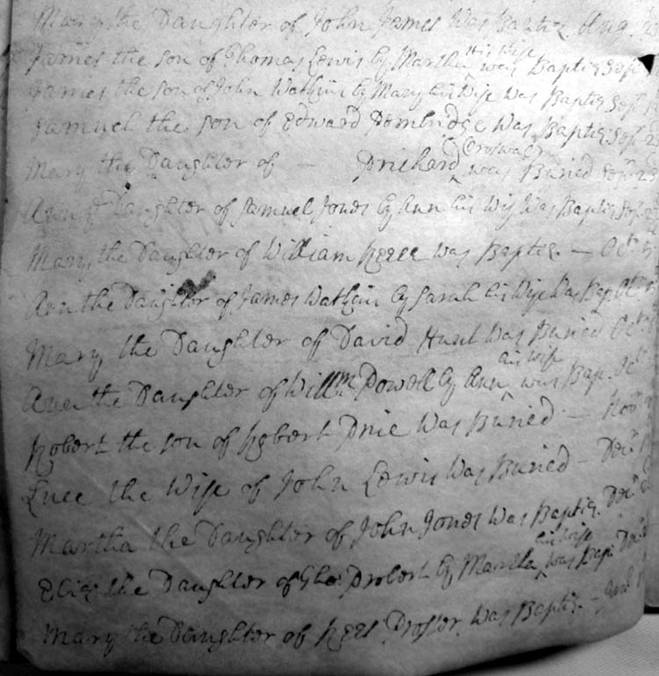 Mary the Daughter of John James Was Baptiz. Aug.
James the son of Thomas Lewis by Martha his wife was Baptiz Sepr
James the son of John Watkin by Mary his Wife Was Baptiz Sepr
Samuel the son of Edward Dombridge Was Baptiz Sepr 2
Mary the Daughter of — Prichard was Buried
Ann ye Daughter of Samuel Jones by Ann his Wife Was Baptiz
Mary the Daughter of William Reece was Baptiz. — Octr
Ann the Daughter of James Watkin by Sarah his Wife Was Bap. Octr
Mary the Daughter of David Hunt Was Buried Octr
Ann the Daughter of Willm Powell by Ann his wife was Bap. Octr
Robert the son of Robert Price Was Buried — Novr
Luce the Wife of John Lewis Was Buried — Decr
Martha the Daughter of John Jones Was Baptiz. Decr
Eliz. the Daughter of Tho: Probert by Martha his wife was Bap: Decr
Mary the Daughter of Rees Prosser Was Baptiz. —